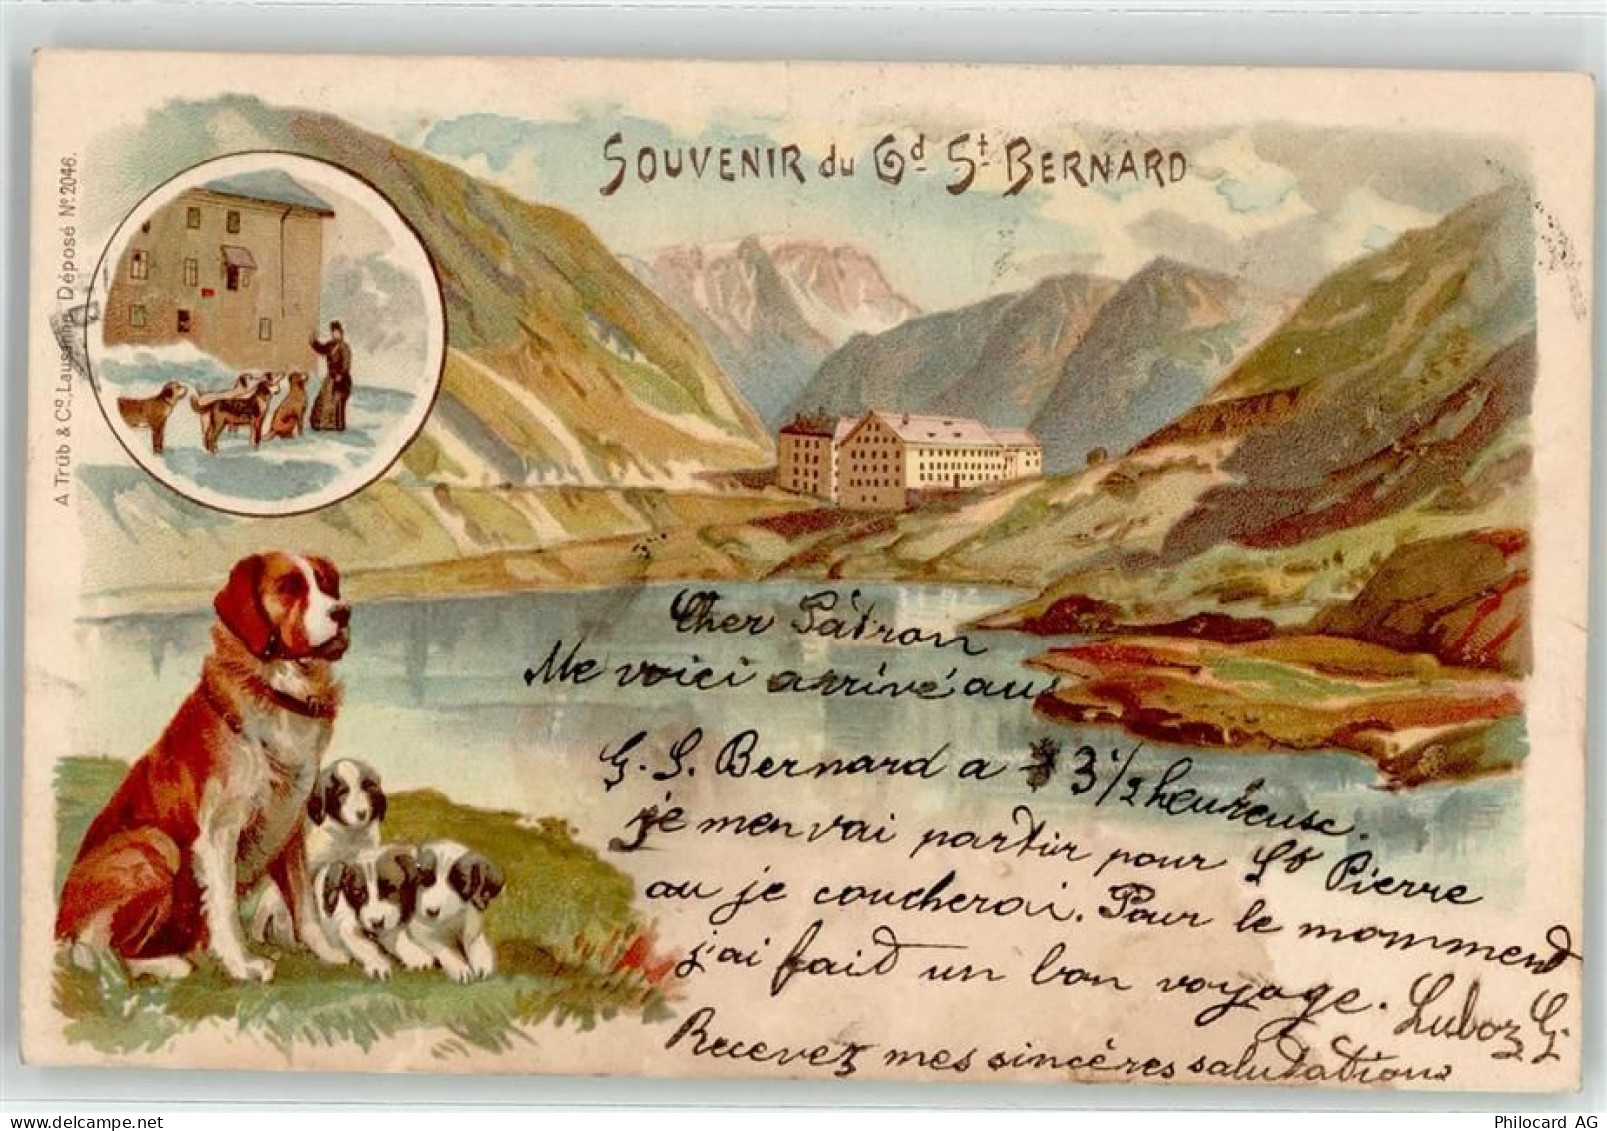 SOUVENIR du Gd St BERNARD
A Trüb & Co. Lausanne Déposé No. 2046.
Cher Pâtron
Me voici arrivé au
G. S. Bernard a 3 1/2 heureuse.
je men vai partir pour St Pierre
au je coucherai. Pour le mommend
j'ai fait un bon voyage. Luboz G.
Recevez mes sincères saludations
Philocard AG